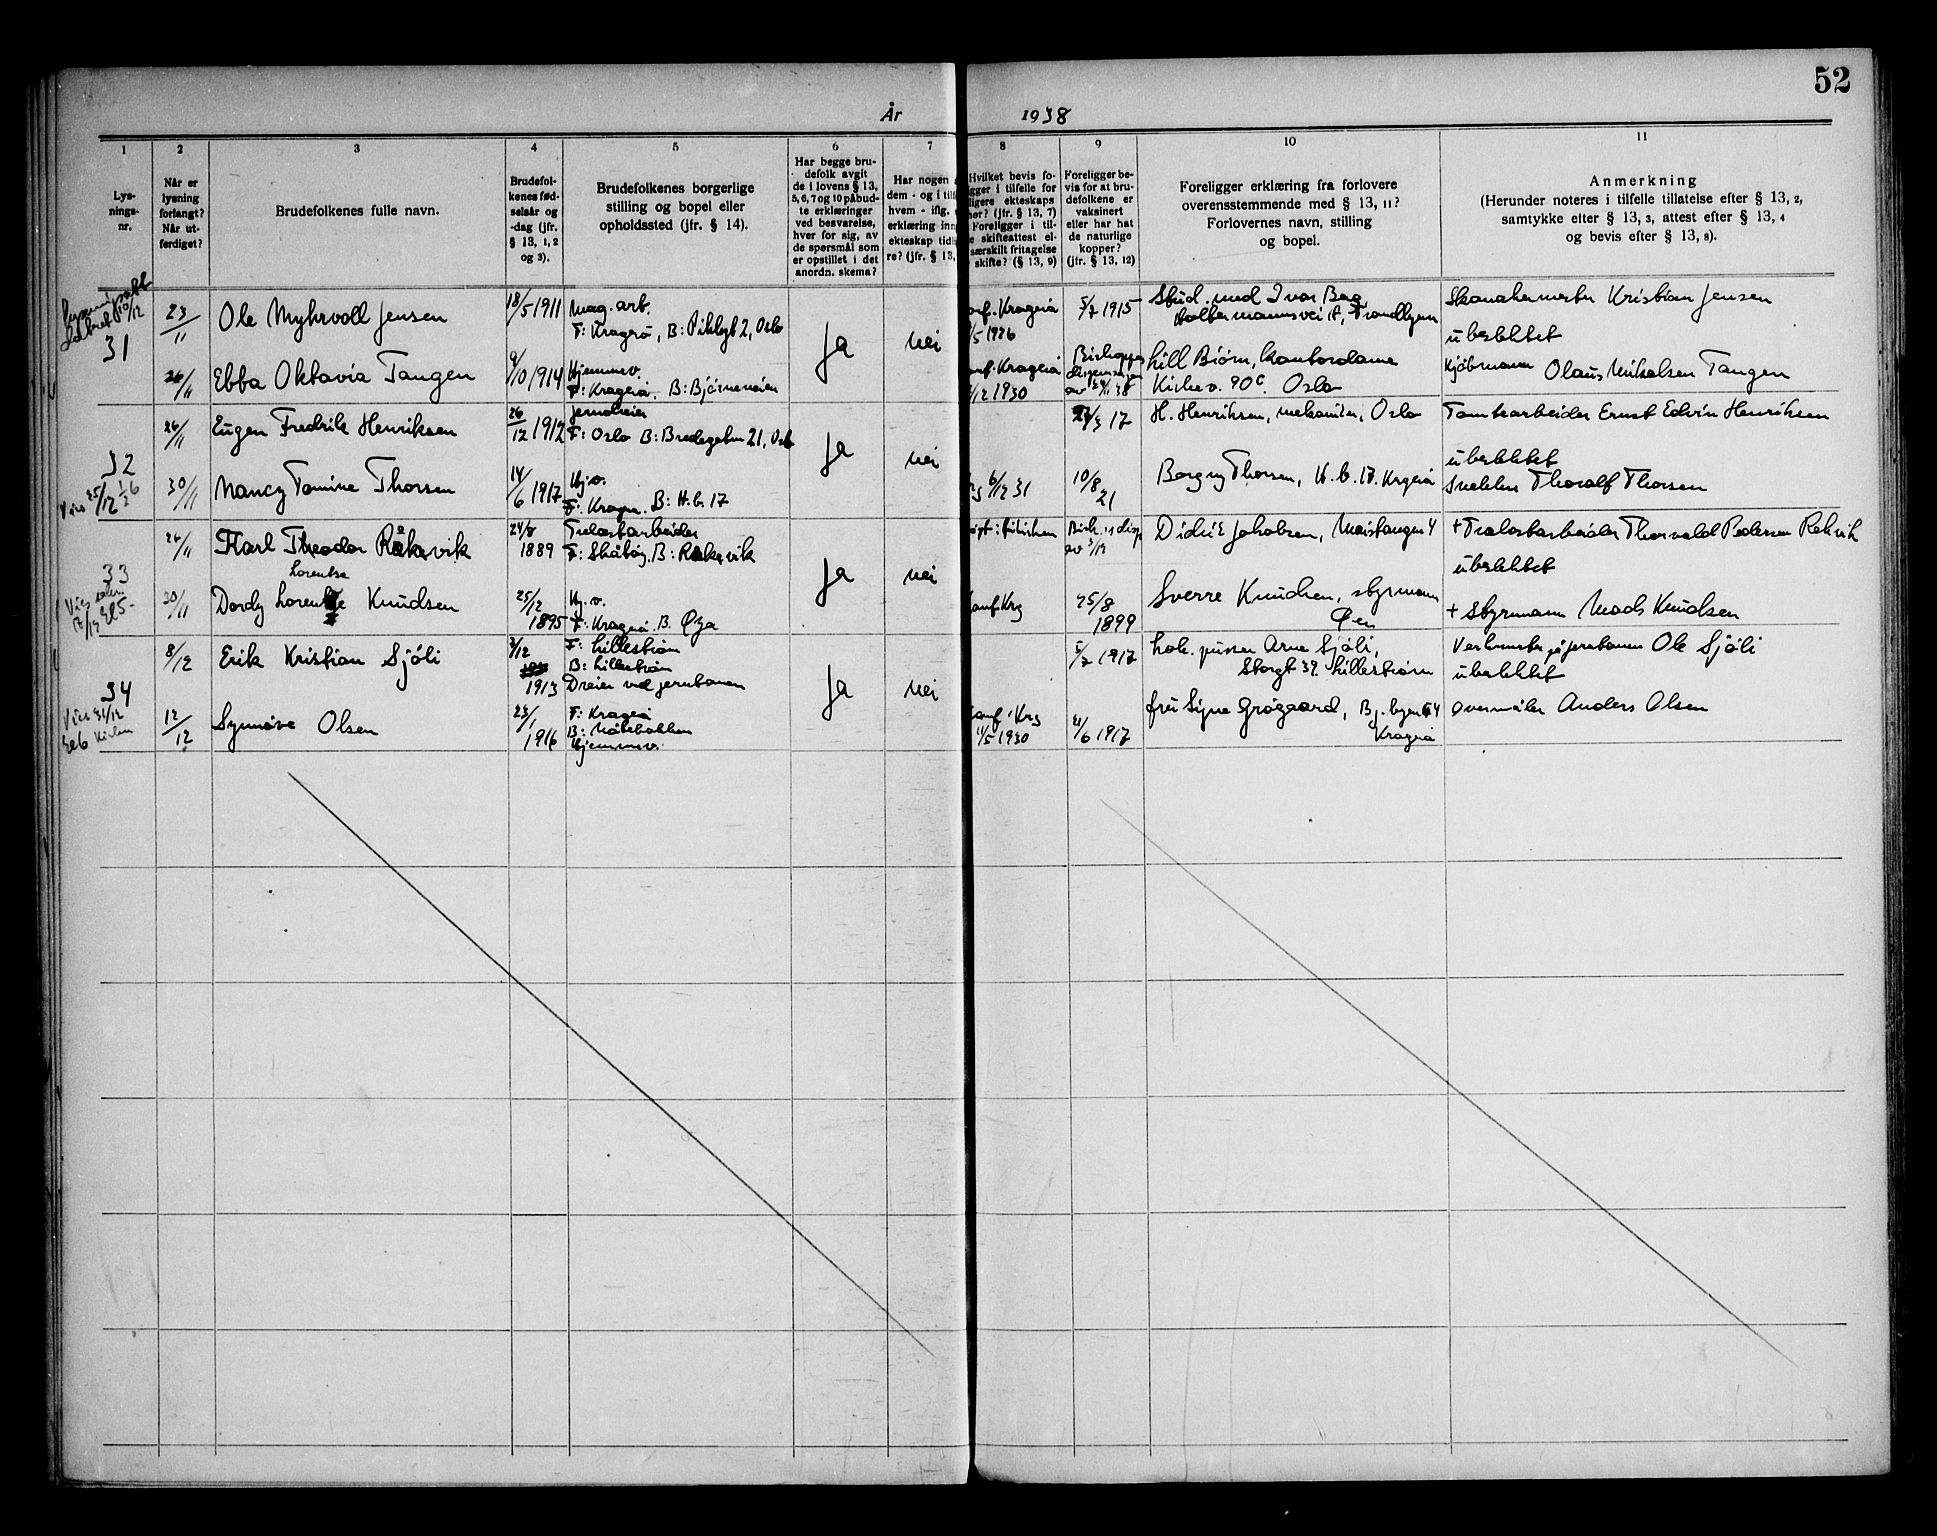 52
År 1938
1 2 3 4 5 6 7 8 9 10 11
Lys-
nings-
nr.
Når er
lysning
forlangt?
Når ut-
ferdiget?
Brudefolkenes fulle navn.
Brudefol-
kenes fød-
selsår og
-dag (jfr.
§ 13, 1, 2
og 3).
Brudefolkenes borgerlige
stilling og bopel eller
opholdssted (jfr. § 14).
Har begge bru-
defolk avgit
de i lovens § 13,
5, 6, 7 og 10 påbud-
te erklæringer
ved besvarelse,
hver for sig, av
de spørsmål som
er opstillet i det
anordn. skema?
Har nogen
dem - og i til
hvem - iflg.
erklæring inn
ekteskap tid
re? (jfr. § 13,
Hvilket bevis fo-
gger i tilfelle for
ligere ekteskaps
hør? (jfr. § 13, 7)
Foreligger i til-
e skifteattest el-
særskilt fritagelse
skifte? (§ 13, 9)
Foreligger be-
vis for at bru-
defolkene er
vaksinert
eller har hat
de naturlige
kopper?
(jfr. § 13, 12)
Foreligger erklæring fra forlovere
overensstemmende med § 13, 11?
Forlovernes navn, stilling
og bopel.
Anmerkning
(Herunder noteres i tilfelle tillatelse efter § 13, 2,
samtykke efter § 13, 3, attest efter § 13, 4
og bevis efter § 13, 8).
31
23/11 Ole Myhrvoll Jensen 18/5 1911 Mag. arb.
F: Kragerø, B: Pilegt 2, Oslo
Ja nei
Konf. Kragerø
/5 1926
5/7 1915
Stud. med Ivar Berg,
Skomakermester Kristian Jensen
ubeslektet
26/11 Ebba Oktavia Tangen 9/10 1914 Hjemmev.
F: Kragerø. B: Bjørneveien
Konf. Kragerø
/12 1930
Lill Biørn, kontordame
Kirkev. 90c. Oslo
Kjøbmann Olaus Nikolsen Tangen
32
26/11 Eugen Fredrik Henriksen 26/12 1912 Jerndreier
F: Oslo B: Bredogaten 21, Oslo
Ja nei
/3 17
H. Henriksen, mekaniker, Oslo
Tomtearbeider Ernst Edvin Henriksen
ubeslektet
30/11 Nancy Tomine Thorsen 14/6 1917 Hj.v.
F: Kragerø. B: H.b. 17
6/12 31
10/8 21
Borgny Thorsen, H.b. 17. Krgerø
Snekker Thoralf Thorsen
33
26/11 Karl Theodor Råkevik 24/8 1889 Trelastarbeider
F: Skåtøy. B: Rekevik
Ja nei
Didrik Jakobsen, Meistangen 4
+ Trelastarbeider Thorvald Pedersen Rekvik
ubeslektet
Lorentse
30/11 Dordy Lorentse Knudsen 25/12 1895 Hj.v.
F: Kragerø. B. Øya
Konf Krg
25/8 1899
Sverre Knudsen, styrmann
Øen
+ Styrmann Mads Knudsen
34
8/12 Erik Kristian Sjøli 3/12 1913
F: Lillestrøm
B: Lillestrøm
Dreier ved jernbanen
Ja nei
5/7 1917
Lok. pusser Arne Sjøli,
Storgt 39. Lillestrøm
Verkmester på jernbanen Ole Sjøli
ubeslektet
12/12 Synnøve Olsen 23/1 1916
F: Kragerø
B: Målebakken
Hjemmev.
Konf. Krg
/5 1930
21/6 1917
fru Signe Grøgaard, Bj. byen 64
Kragerø
Overmåler Anders Olsen